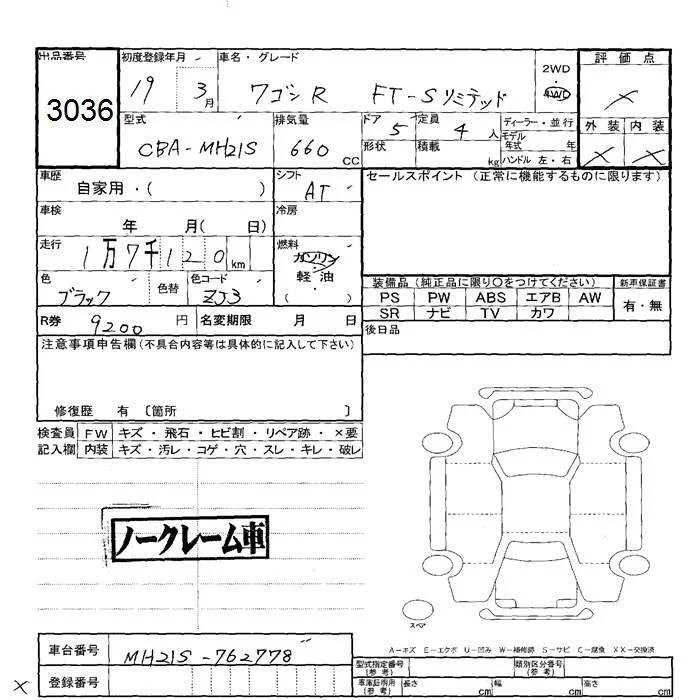 出品番号 初度登録年月 車名・グレード 評価点
3036 19 3月 ワゴンR FT-Sリミテッド 2WD 4WD ×
型式 排気量 ドア 定員 ディーラー・並行 外装 内装
CBA-MH21S 660 CC 5 4人 モデル年式 年 × ×
形状 積載 kg ハンドル 左・右
車歴 自家用・( ) シフト AT セールスポイント (正常に機能するものに限ります)
車検 年 月( 日) 冷房
走行 1万7千120km 燃料 ガソリン 軽油 ( ・ )
色 ブラック 色替 色コード ZJ3 装備品 (純正品に限り○をつけてください) 新車保証書
PS PW ABS エアB AW 有・無
SR ナビ TV カワ
R券 9200 円 名変期限 月 日 後日品
注意事項申告欄(不具合内容等は具体的に記入して下さい)
修復歴 有 〔箇所 〕
検査員 FW キズ・飛石・ヒビ割・リペア跡・×要
記入欄 内装 キズ・汚レ・コゲ・穴・スレ・キレ・破レ
ノークレーム車
スペア
A-キズ E-エクボ U-凹み W-補修跡 S-サビ C-腐食 XX-交換済
車台番号 MH21S-762778 型式指定番号(参考) 類別区分番号(参考)
× 登録番号 車庫証明用(参考) 長さ cm 幅 cm 高さ cm